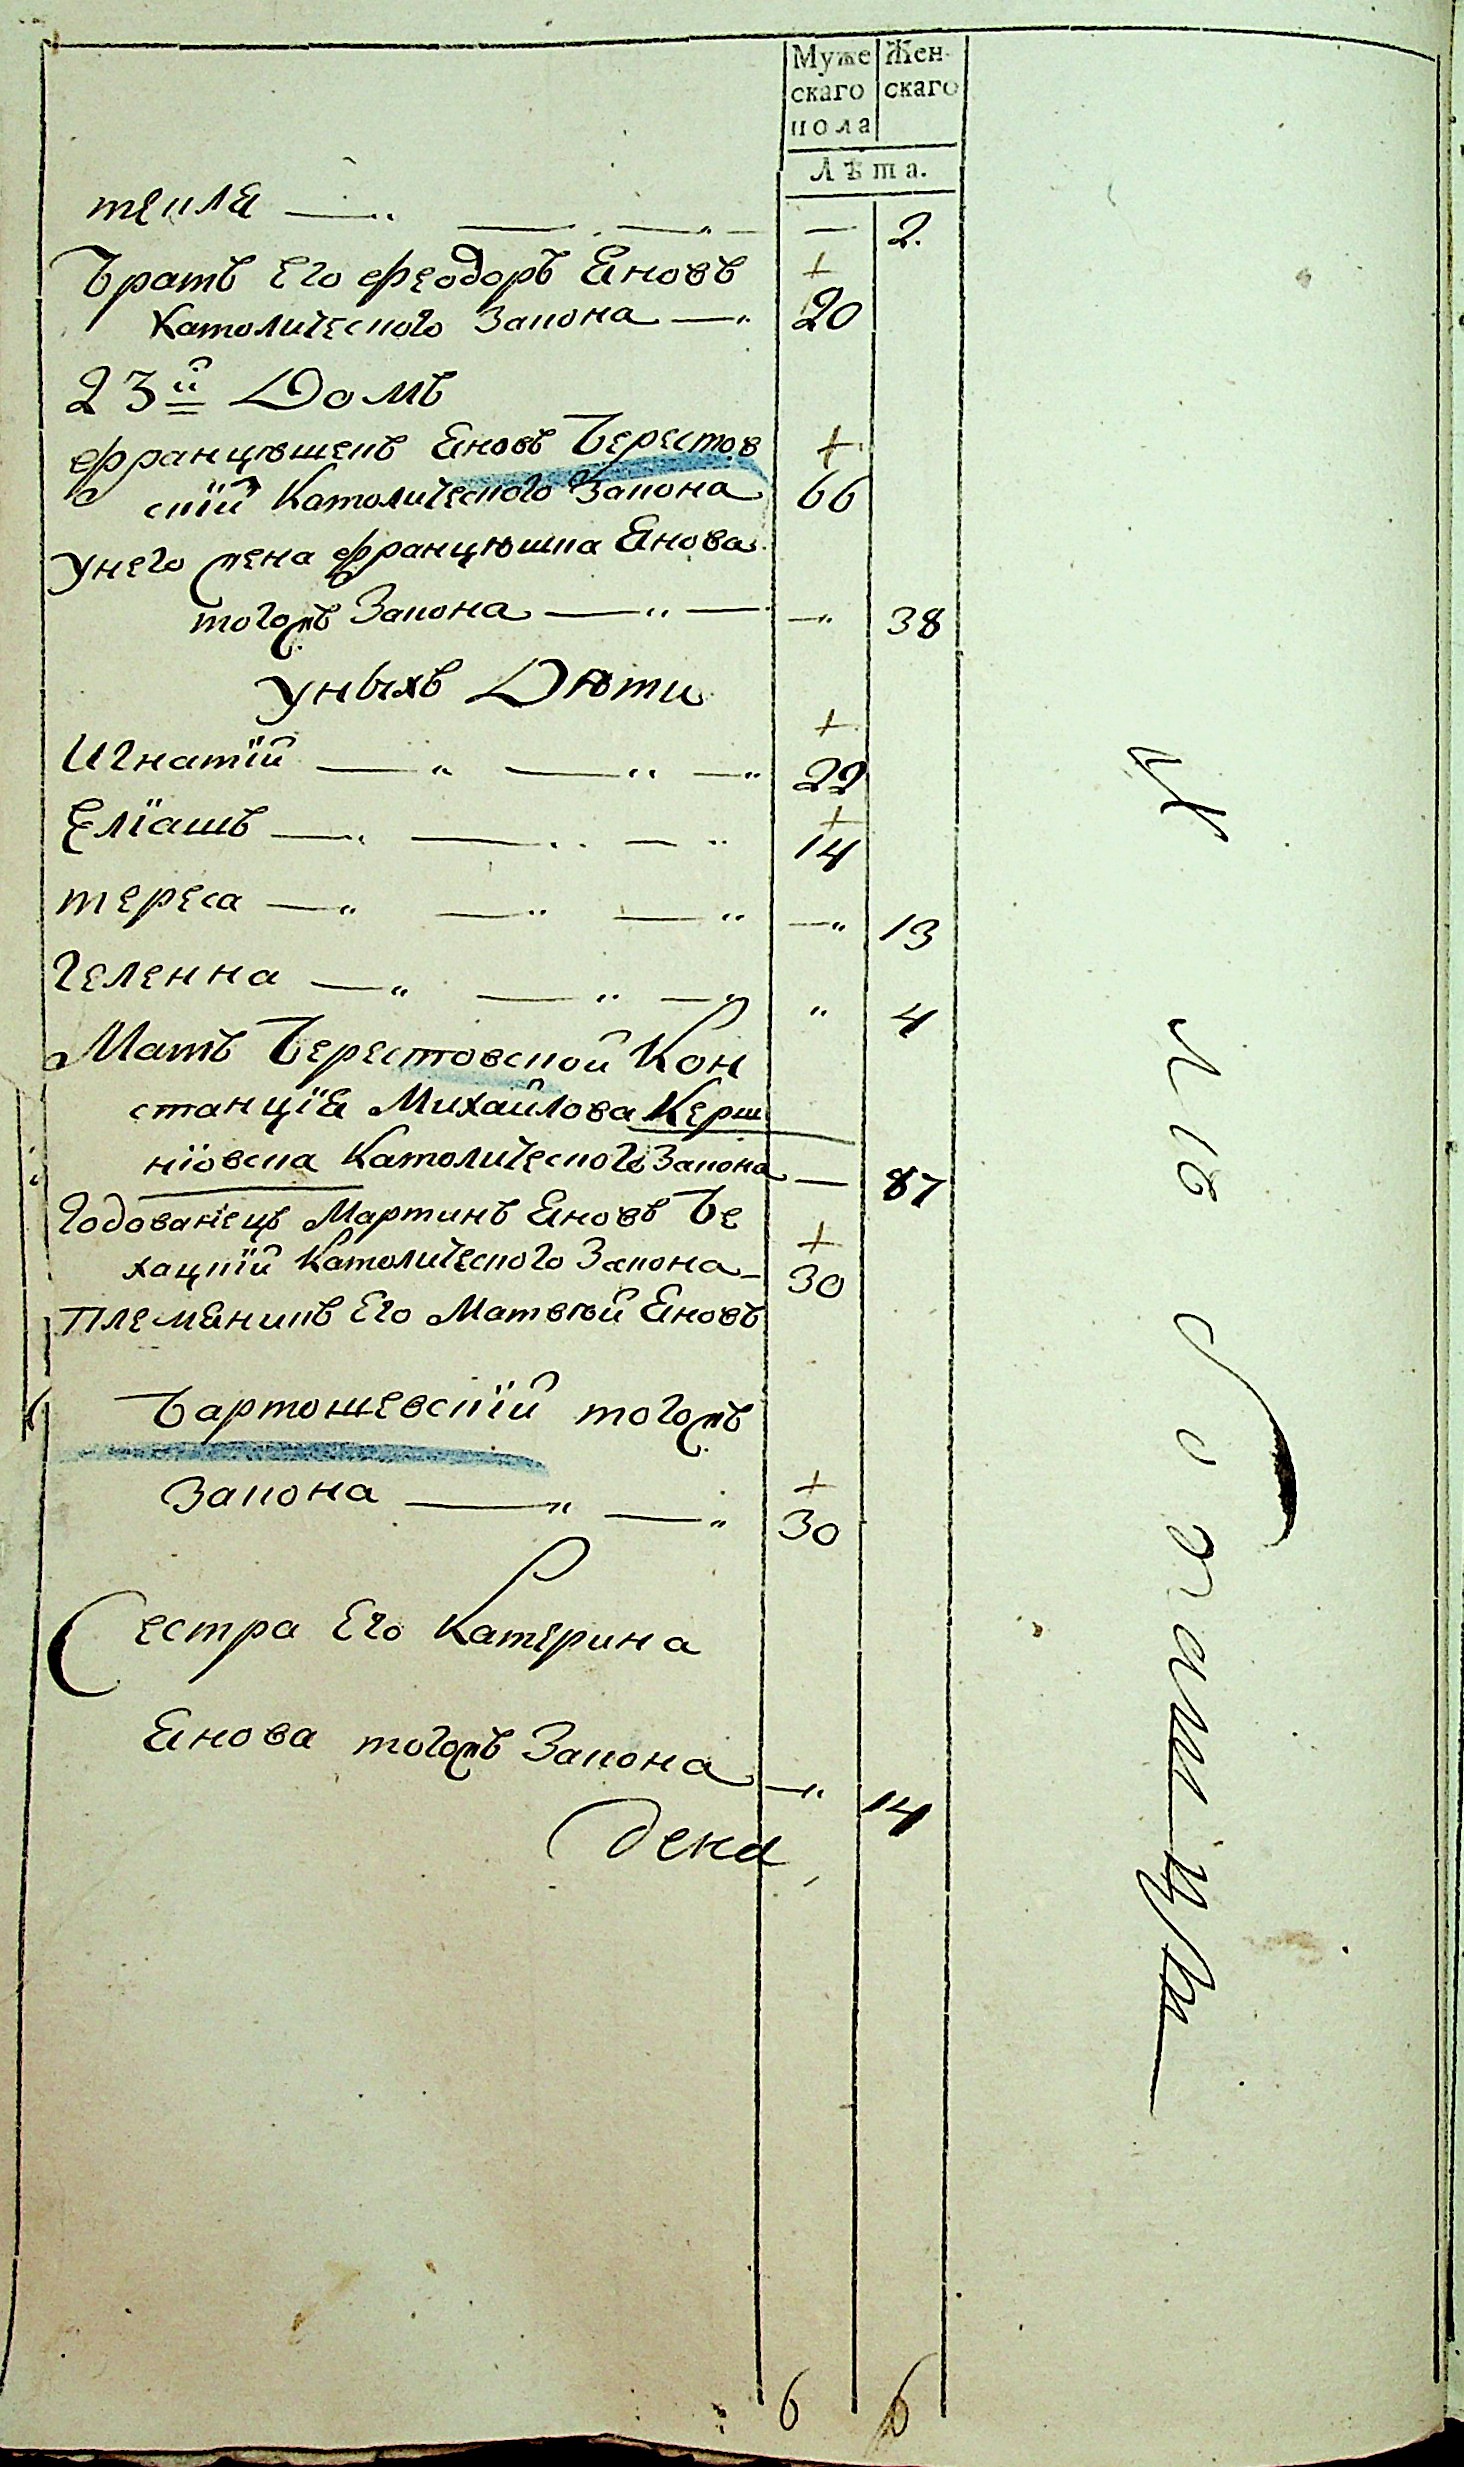 Муже Жен-
скаго скаго
пола
Лѣта.
текля — — — — 2.
Братъ Его Феодоръ Яновъ +
Католического Закона — 20
23й Домъ
Францѣшекъ Яновъ Берестов +
скїй Католического Закона 66
У него жена Францѣшка Янова
тогожъ Закона — — — 38
У ныхъ Дѣти
+
Игнатїй — — — 22
+
Елїашъ — — — 14
тереса — — — — 13
Геленна — — — 4
Мать Берестовской Кон
станцїя Михайлова Керш
нїовска Католического Закона — 87
Годованецъ Мартинъ Яновъ Бе +
хацкїй Католического Закона — 30
Племяникъ Его Матвѣй Яновъ
Бартошевскїй тогожъ
+
Закона — — 30
Сестра Его Катерина
Янова тогожъ Закона — 14
дека
6 6